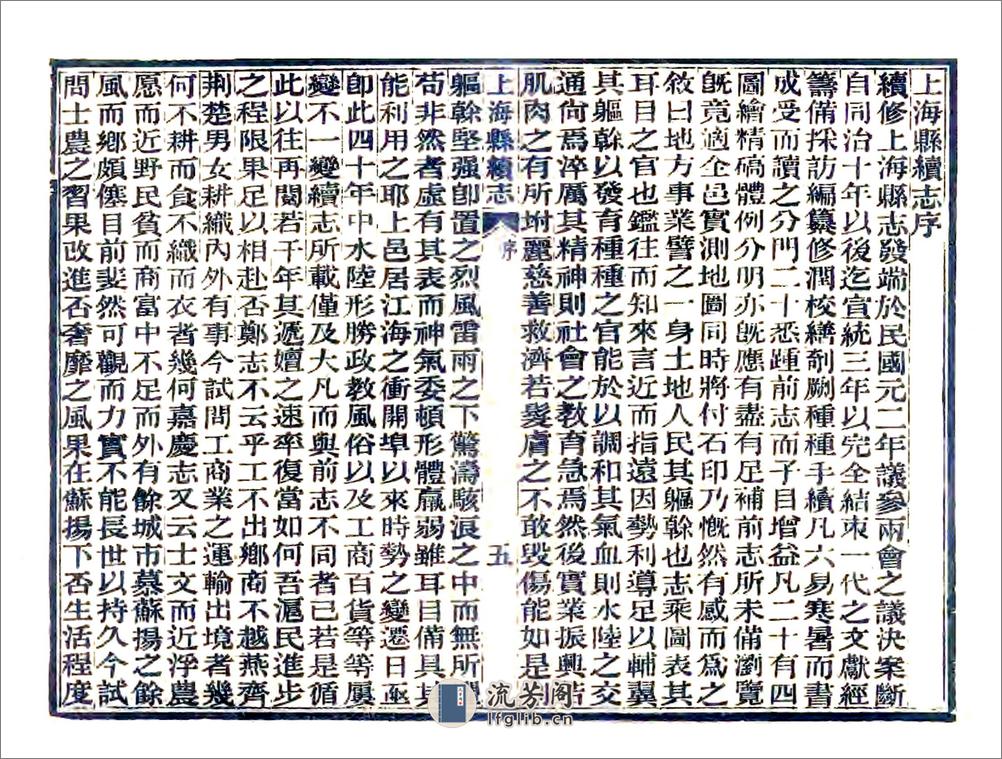 上海縣續志序
續修上海縣志發端於民國元二年議參兩會之議決案斷
自同治十年以後迄宣統三年以完全結束一代之文獻經
籌備採訪編纂修潤校繕剞劂種種手續凡六易寒暑而書
成受而讀之分門二十悉踵前志而子目增益凡二十有四
圖繪精碻體例分明亦旣應有盡有足補前志所未備瀏覽
旣竟適全邑實測地圖同時將付石印乃慨然有感而爲之
敘曰地方事業譬之一身土地人民其軀幹也志乘圖表其
耳目之官也鑑往而知來言近而指遠因勢利導足以輔翼
其軀幹以發育種種之官能於以調和其氣血則水陸之交
通尙焉淬厲其精神則社會之教育急焉然後實業振興若
肌肉之有所坿麗慈善救濟若髮膚之不敢毀傷能如是則
上海縣續志 序 五
軀幹堅强卽置之烈風雷雨之下驚濤駭浪之中而無所
苟非然者虛有其表而神氣委頓形體羸弱雖耳目備具其
能利用之耶上邑居江海之衝開埠以來時勢之變遷日亟
卽此四十年中水陸形勝政教風俗以及工商百貨等等屢
變不一變續志所載僅及大凡而與前志不同者已若是循
此以往再閱若干年其遞嬗之速率復當如何吾滬民進步
之程限果足以相赴否鄭志不云乎工不出鄉商不越燕齊
荆楚男女耕織內外有事今試問工商業之運輸出境者幾
何不耕而食不織而衣者幾何嘉慶志又云士文而近浮農
愿而近野民貧而商富中不足而外有餘城市慕蘇揚之餘
風而鄉頗僿目前斐然可觀而力實不能長世以持久今試
問士農之習果改進否奢靡之風果在蘇揚下否生活程度
流芳阁
lfglib.cn